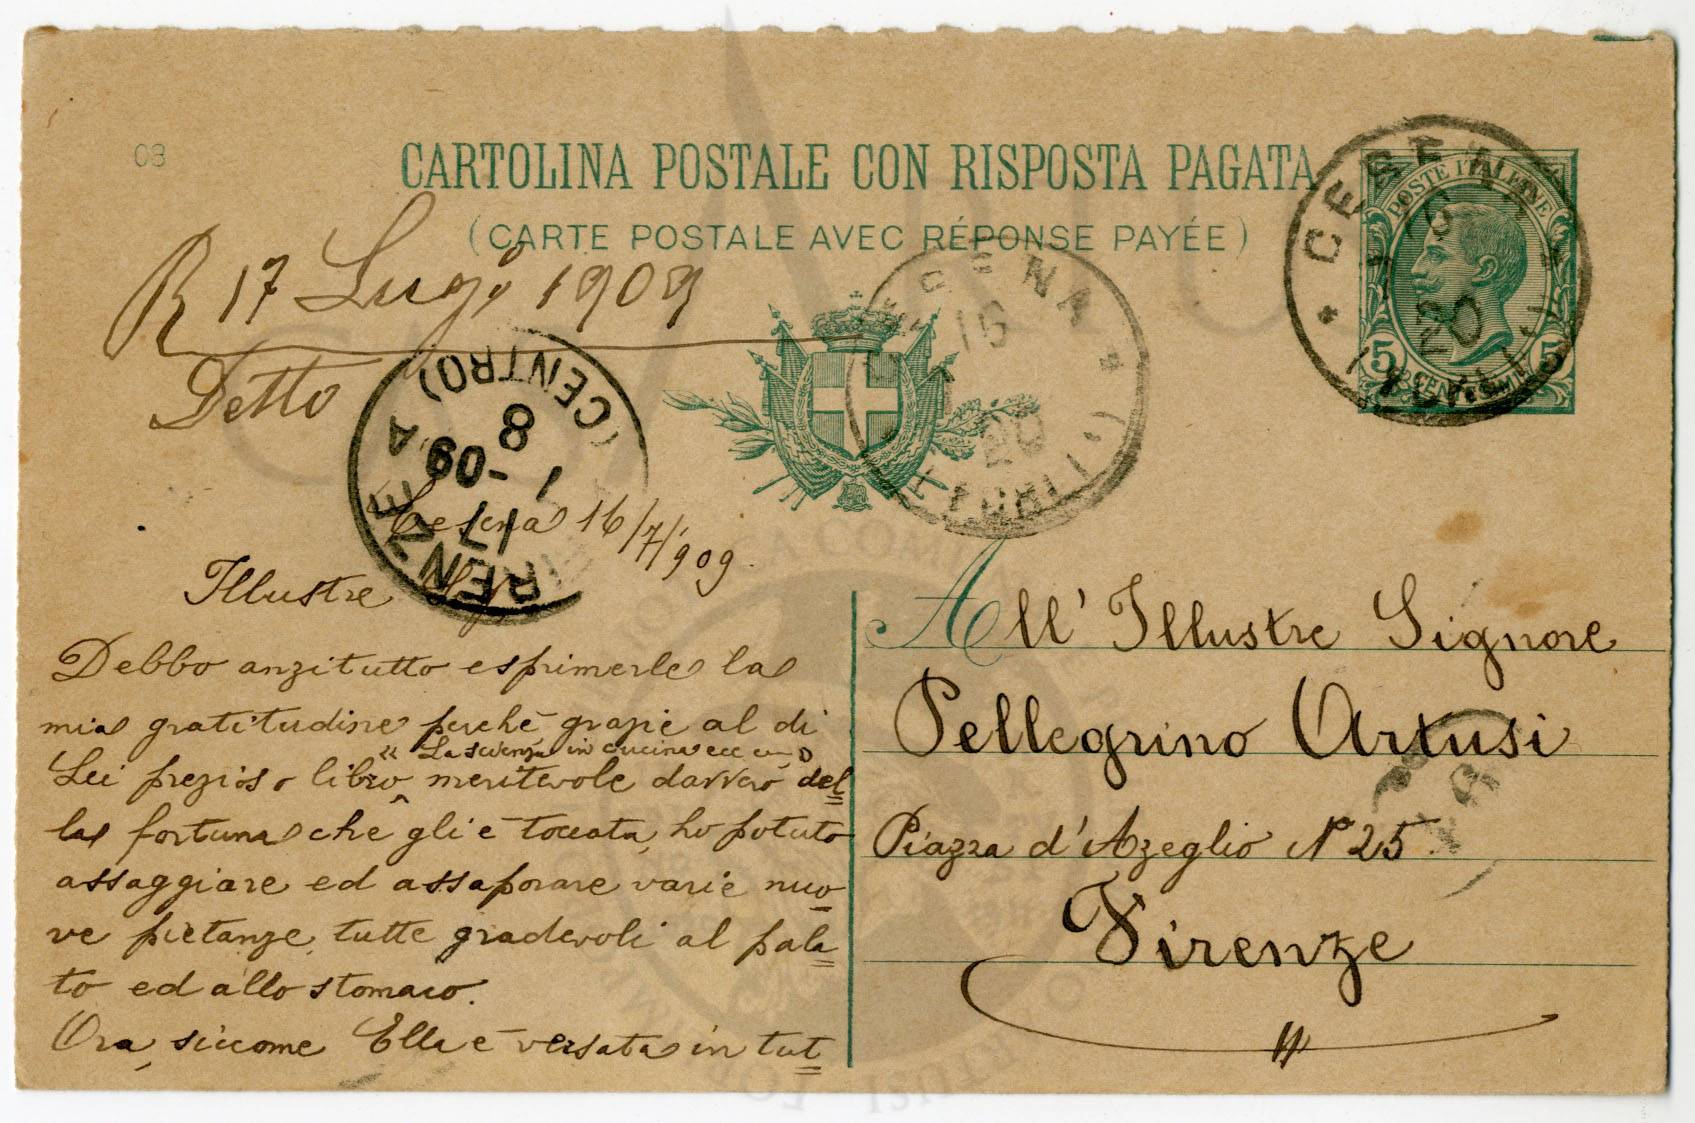 08
CARTOLINA POSTALE CON RISPOSTA PAGATA
(CARTE POSTALE AVEC RÉPONSE PAYÉE)
POSTE ITALIANE
5 CENTESIMI 5
CESENA
16
20
(FORLI)
CESENA
16
20
(FORLI)
R 17 Luglio 1909
Detto
FIRENZE
(CENTRO)
17
7-09.A
8
Cesena 16/7/909.
Illustre Sig.
Debbo anzitutto esprimerle la
mia gratitudine perchè grazie al di
Lei prezioso libro "La scienza in cucina ecc meritevole davvero del
la fortuna che gli è toccata, ho potuto
assaggiare ed assaporare varie nuo
ve pietanze tutte gradevoli al pala
to ed allo stomaco.
Ora, siccome Ella è versata in tut
All'Illustre Signore
Pellegrino Artusi
Piazza d'Azeglio N 25
Firenze